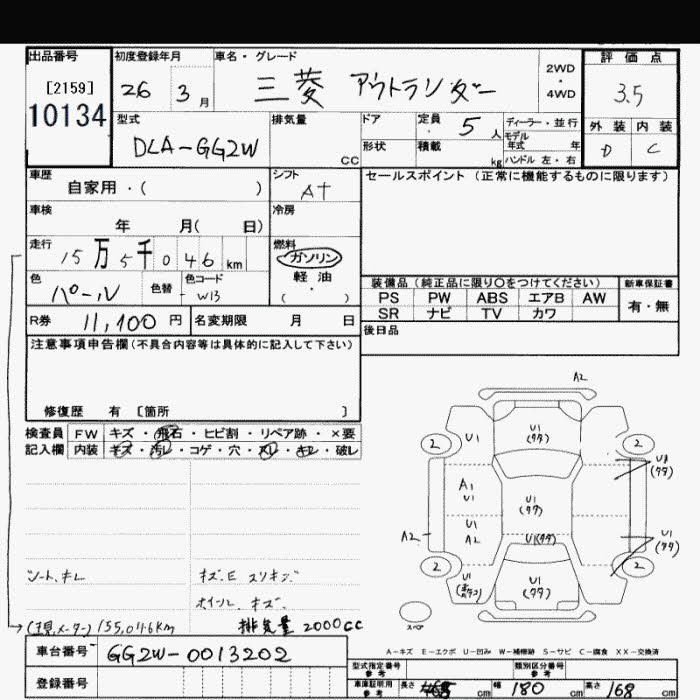 出品番号
[2159]
10134
初度登録年月
26 3 月
車名・グレード
三菱 アウトランダー
2WD
・
4WD
評価点
3.5
外装 内装
D C
型式
DLA-GG2W
排気量
CC
ドア
形状
定員 5 人
積載 kg
ディーラー・並行
モデル
年式 年
ハンドル 左・右
車歴
自家用・( )
シフト
AT
セールスポイント (正常に機能するものに限ります)
車検
年 月( 日)
冷房
走行
15万5千046 km
燃料
ガソリン
軽油
( ・ )
色
パール
色替
色コード
-W13
装備品 (純正品に限り○をつけてください)
PS PW ABS エアB AW
SR ナビ TV カワ
新車保証書
有・無
R券 11,100 円
名変期限 月 日
後日品
注意事項申告欄(不具合内容等は具体的に記入して下さい)
修復歴 有 [箇所 ]
検査員
記入欄
FW キズ・飛石・ヒビ割・リペア跡・×要
内装 キズ・汚レ・コゲ・穴・スレ・キレ・破レ
A2
U1
U1
(タタ)
2
2
U1
(タタ)
A1
U1
U1
(タタ)
U1
A2
A2
U1(タタ)
U1
(タタ)
2
2
U1
U1
(タタ)
スペア
シート、キレ
キズ.E スリキズ
ホイール キズ
(現メーター) 155,046Km
排気量 2000CC
A-キズ E-エクボ U-凹み W-補修跡 S-サビ C-腐食 XX-交換済
車台番号 GG2W-0013202
登録番号
型式指定番号
参考
類別区分番号
参考
車庫証明用
参考
長さ cm
幅 180 cm
高さ 168 cm